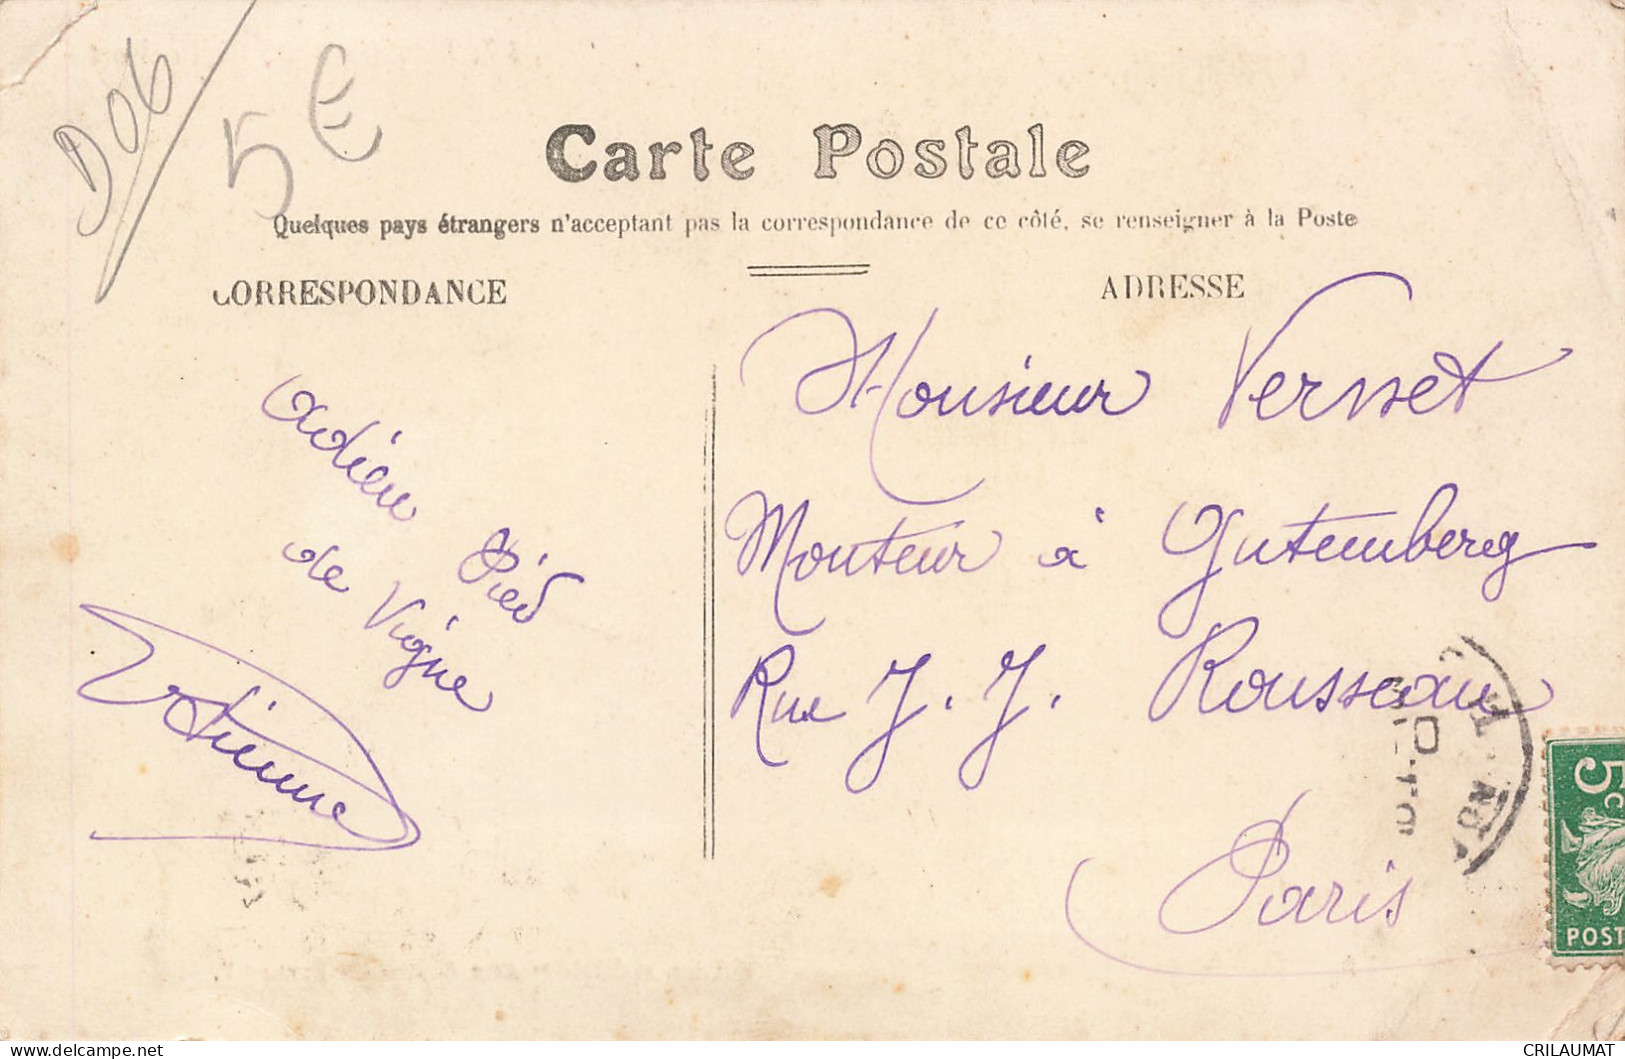 D06
5€
Carte Postale
Quelques pays étrangers n'acceptent pas la correspondance de ce côté, se renseigner à la Poste
CORRESPONDANCE
ADRESSE
Adieu Pied
de Vigne
Etienne
Monsieur Vernet
Monteur à Gutemberg
Rue J. J. Rousseau
Paris
5c
POST
CRILAUMAT